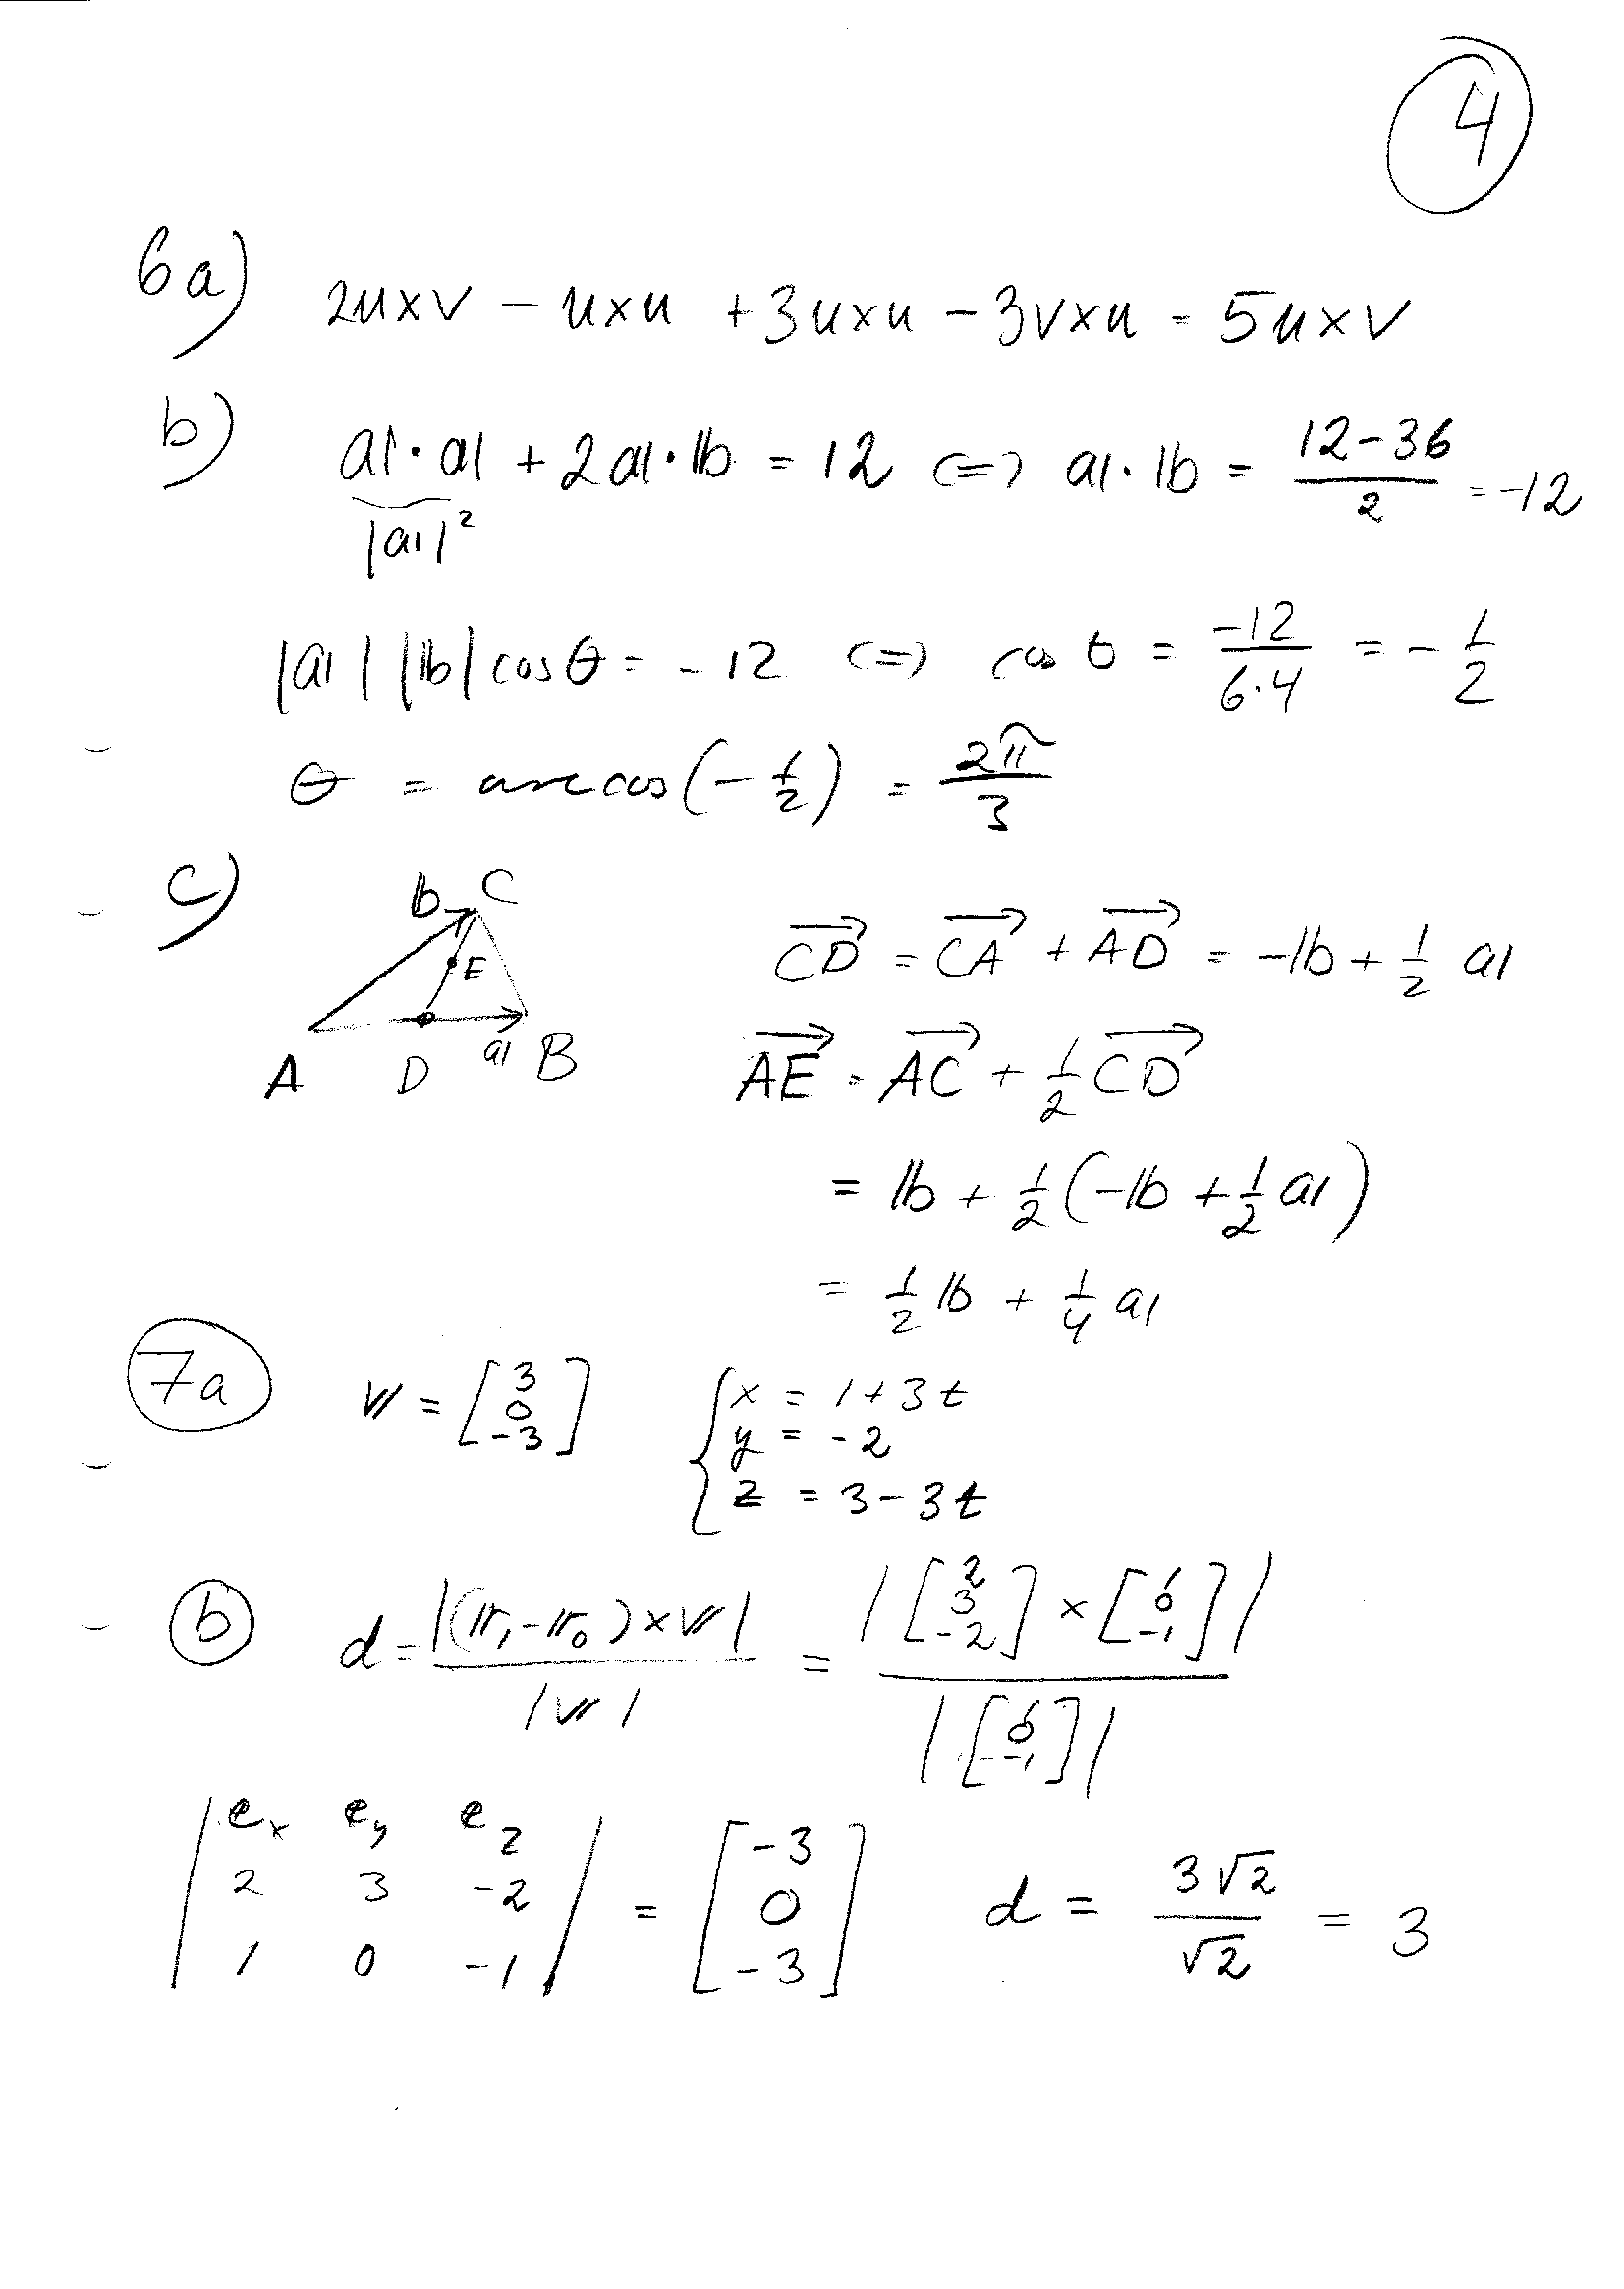 4
6a) 2u×v - u×u + 3u×u - 3v×u = 5u×v
b) a·a + 2a·b = 12 <=> a·b = (12-36)/2 = -12
|a|²
|a||b| cosθ = -12 <=> cos θ = -12/(6·4) = -1/2
θ = arccos(-1/2) = 2π/3
c) b C
E
A D a B
CD→ = CA→ + AD→ = -b + 1/2 a
AE→ = AC→ + 1/2 CD→
= b + 1/2(-b + 1/2 a)
= 1/2 b + 1/4 a
7a v = [3 0 -3] { x = 1+3t
y = -2
z = 3-3t
b d = |(r₁-r₀)×v| / |v| = |[2 3 -2] × [1 0 -1]| / |[1 0 -1]|
| e_x e_y e_z |
| 2 3 -2 | = [-3 0 -3] d = 3√2/√2 = 3
| 1 0 -1 |